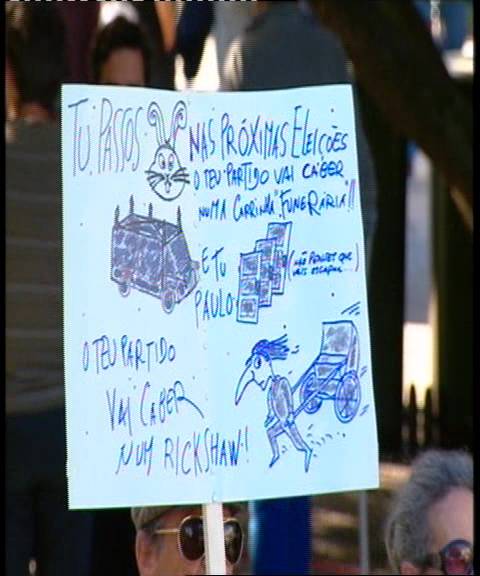 TU, PASSOS
NAS PRÓXIMAS ELEIÇÕES
O TEU PARTIDO VAI CABER
NUMA CARRINHA "FUNERÁRIA"!!
E TU
PAULO
(NÃO PENSES QUE
VAIS ESCAPAR...)
O TEU PARTIDO
VAI CABER
NUM RICKSHAW!